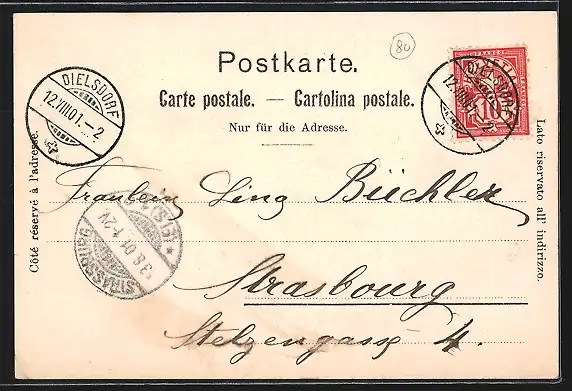 80
Postkarte.
Carte postale. — Cartolina postale.
Nur für die Adresse.
DIELSDORF
12.VIII.01.–2
DIELSDORF
12.VIII.01.–2
FRANCO
10
Côté réservé à l'adresse.
Lato riservato all' indirizzo.
Fräulein Lina Büchler
STRASSBURG
(ELS)
Strasbourg
Stelzengasse 4.